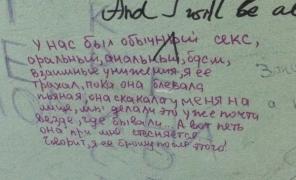 And I will be a
у нас был обычный секс,
оральный, анальный, бдсм,
взаимные унижения, я ее
трахал, пока она блевала
пьяная, она скакала у меня на
лице, мы делали это уже почти
везде, где бывали... А вот петь
она при мне стесняется.
Говорит, я ее брошу после этого!